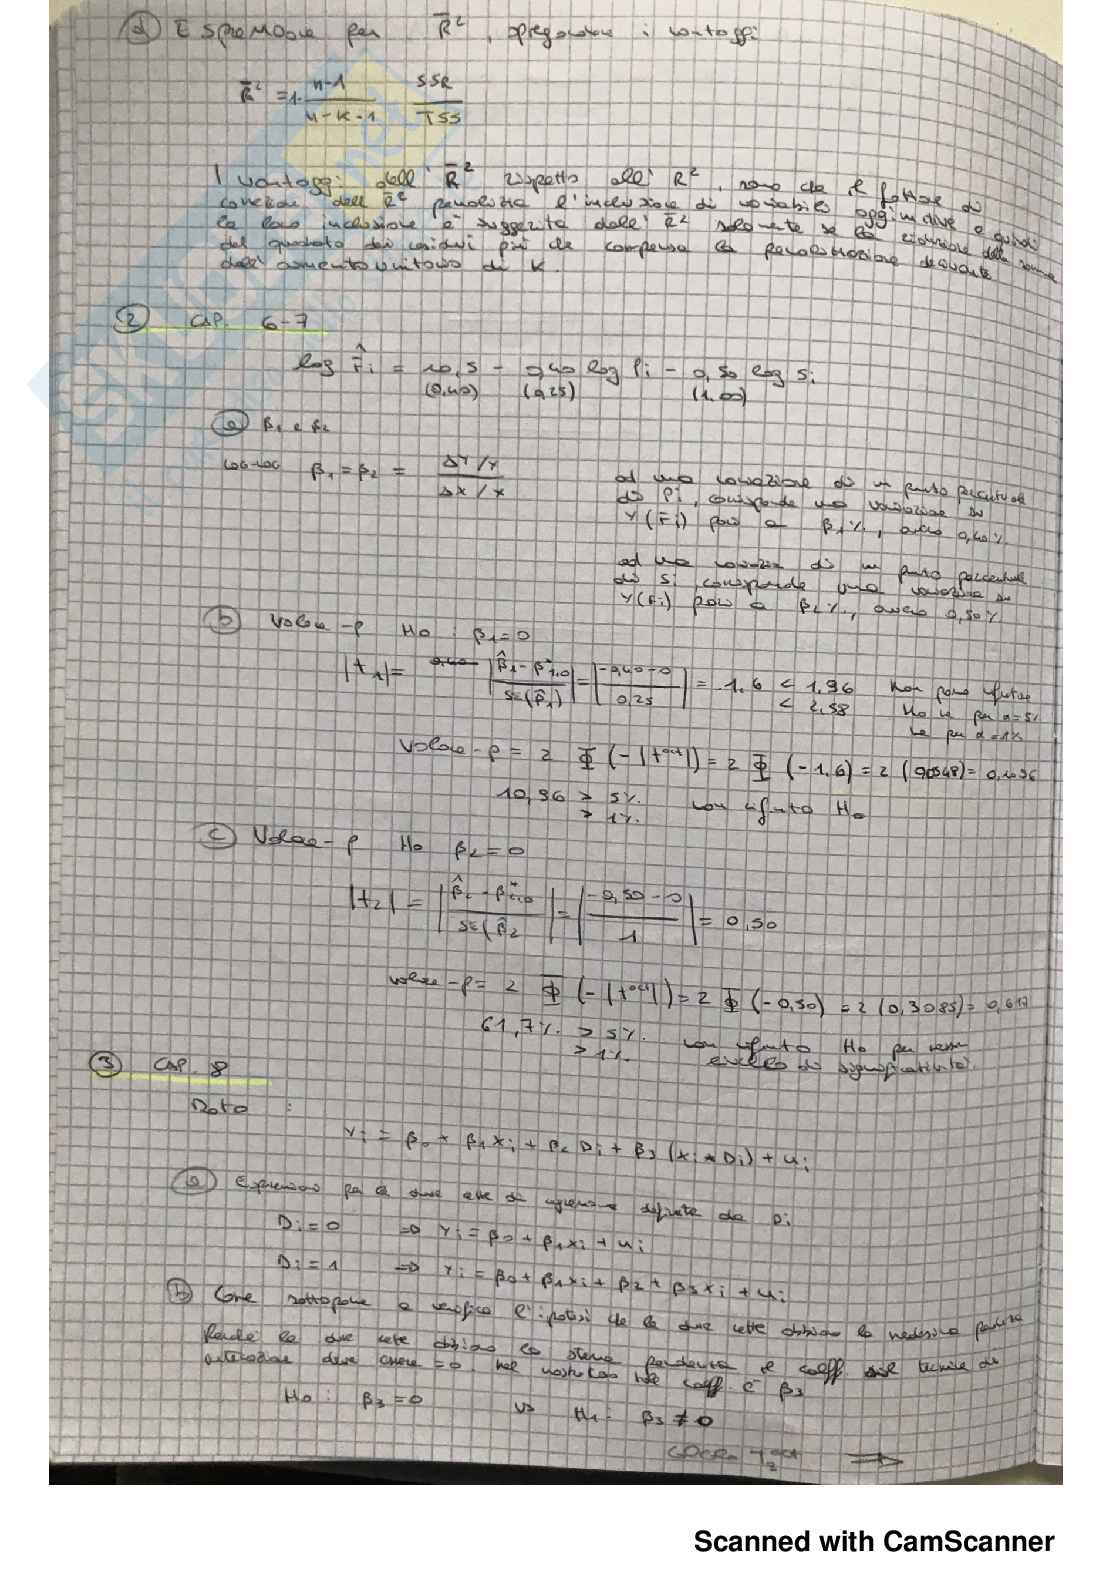 d) Espressione per R̄², spiegandone i vantaggi
R̄² = 1 - (n-1)/(n-k-1) SSR/TSS
I vantaggi dell' R̄² rispetto all' R², sono che il fattore di
correzione dell' R̄² penalizza l'inclusione di variabili aggiuntive e quindi
la loro inclusione è suggerita dall' R̄² solamente se la riduzione della somma
del quadrato dei residui più che compensa la penalizzazione derivante
dall'aumento unitario di K.
② CAP. 6-7
log F̂i = 10,5 - 0,40 log Pi - 0,50 log Si
(0,40) (0,25) (1,00)
a) β1 e β2
LOG-LOG β1 = β2 = (ΔY/Y)/(ΔX/X)
ad una variazione di un punto percentuale
di Pi, corrisponde una variazione in
Y(Fi) pari a β1%, ovvero 0,40%.
ad una variazione di un punto percentuale
di Si corrisponde una variazione in
Y(Fi) pari a β2%, ovvero 0,50%
b) Valore-p H0 : β1=0
|t1| = |(β̂1 - β*1,0)/SE(β̂1)| = |(-0,40-0)/0,25| = 1.6 < 1,96 Non posso rifiutare
< 2,58 H0 né per α=5%
né per α=1%
Valore-p = 2 Φ (-|t^act|) = 2 Φ (-1,6) = 2 (0,0548) = 0,1096
10,96 > 5% non rifiuto H0
> 1%
c) Valore-p H0 β2=0
|t2| = |(β̂2 - β*2,0)/SE(β̂2| = |(-0,50-0)/1| = 0,50
valore-p = 2 Φ (-|t^act|) = 2 Φ (-0,50) = 2 (0,3085) = 0,617
61,7% > 5% non rifiuto H0 per nessun
> 1% livello di significatività.
③ CAP. 8
Dato :
Yi = β0 + β1Xi + β2 Di + β3 (Xi * Di) + ui
a) Espressioni per le due rette di regressione definite da Di
Di=0 => Yi = β0 + β1Xi + ui
Di=1 => Yi = β0 + β1Xi + β2 + β3Xi + ui
b) Come sottoporre a verifica l'ipotesi che le due rette abbiano la medesima pendenza
Perché le due rette abbiano la stessa pendenza il coeff del termine di
interazione deve essere =0, nel nostro caso coeff. è β3
H0 : β3 = 0 vs H1 : β3 ≠ 0
Scanned with CamScanner